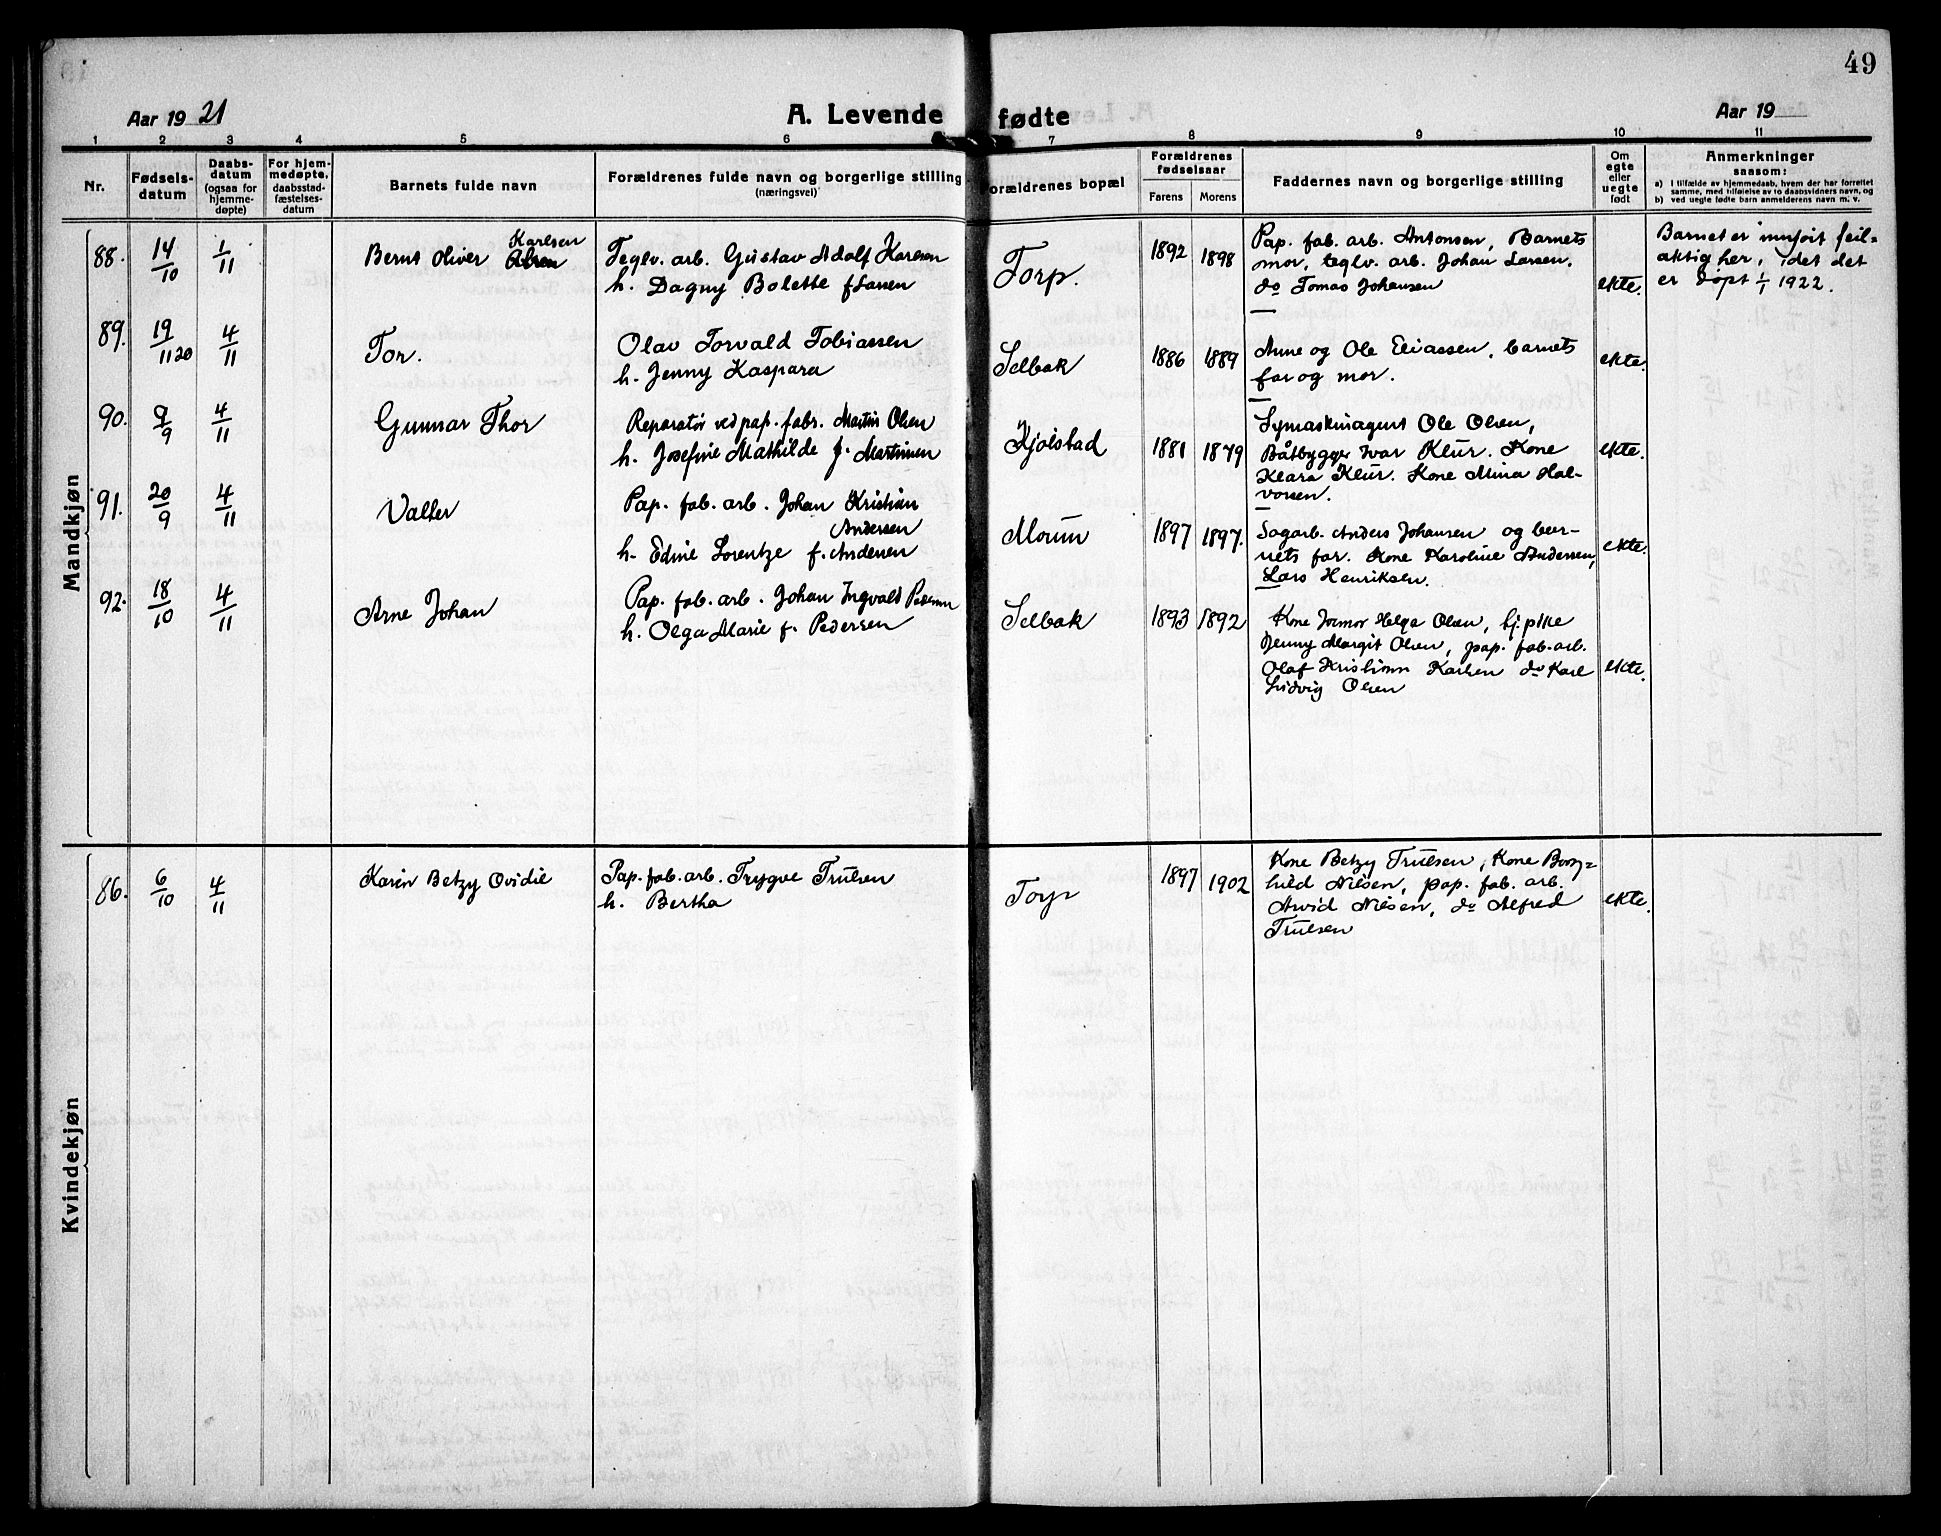 49
Aar 19 21
A. Levende fødte
Aar 19
1 2 3 4 5 6 7 8 9 10 11
Nr.
Fødsels-
datum
Daabs-
datum
(ogsaa for
hjemme-
døpte)
For hjem-
medøpte,
daabsstad-
fæstelses-
datum
Barnets fulde navn
Forældrenes fulde navn og borgerlige stilling
(næringsvei)
orældrenes bopæl
Forældrenes
fødselsaar
Farens Morens
Faddernes navn og borgerlige stilling
Om
egte
eller
uegte
født
Anmerkninger
saasom:
a) I tilfælde av hjemmedaab, hvem der har forrettet
samme, med tilføielse av to daabsvidners navn, og
b) ved uegte fødte barn anmelderens navn m. v.
Mandkjøn
88. 14/10 1/11
Karlsen
Bernt Oliver
Teglv. arb. Gustav Adolf Karlsen
h. Dagny Bolette f. Larsen
Torp.
1892 1898
Pap. fab. arb. Antonsen, Barnets
mor, teglv. arb. Johan Larsen,
do Tomas Johansen
ekte.
Barnet er innført feil-
aktig her, idet det
er døpt 1/1 1922.
89. 19/11 20 4/11
Tor.
Olav Torvald Tobiassen
h. Jenny Kaspara
Selbak
1886 1889
Anne og Ole Eliassen, barnets
far og mor.
ekte.
90. 9/9 4/11
Gunnar Thor
Reparatør ved pap. fabr. Martin Olsen
h. Josefine Mathilde f. Martinsen
Kjølstad
1881 1879
Symaskinagent Ole Olsen,
Båtbygger Ivar Klür. Kone
Klara Klür. Kone Mina Hal-
vorsen.
ekte.
91. 20/9 4/11
Valter
Pap. fab. arb. Johan Kristian
Andersen
h. Edine Lorentze f. Andersen
Moum
1897 1897.
Sagarb. Anders Johansen og bar-
nets far. Kone Karoline Andersen,
Lars Henriksen.
ekte.
92. 18/10 4/11
Arne Johan
Pap. fab. arb. Johan Ingvald Pedersen
h. Olga Marie f. Pedersen
Selbak
1893 1892
Kone Helga Olsen, hj. pike
Jenny Margit Olsen, pap. fab. arb.
Olaf Kristian Karlsen do Karl
Ludvig Olsen
ekte.
Kvindekjøn
86. 6/10 4/11
Karin Betzy Ovidie
Pap. fab. arb. Trygve Trulsen
h. Bertha
Torp
1897 1902
Kone Betzy Trulsen, Kone Borg-
hild Nilsen, pap. fab. arb.
Arvid Nilsen, do Alfred
Trulsen
ekte.